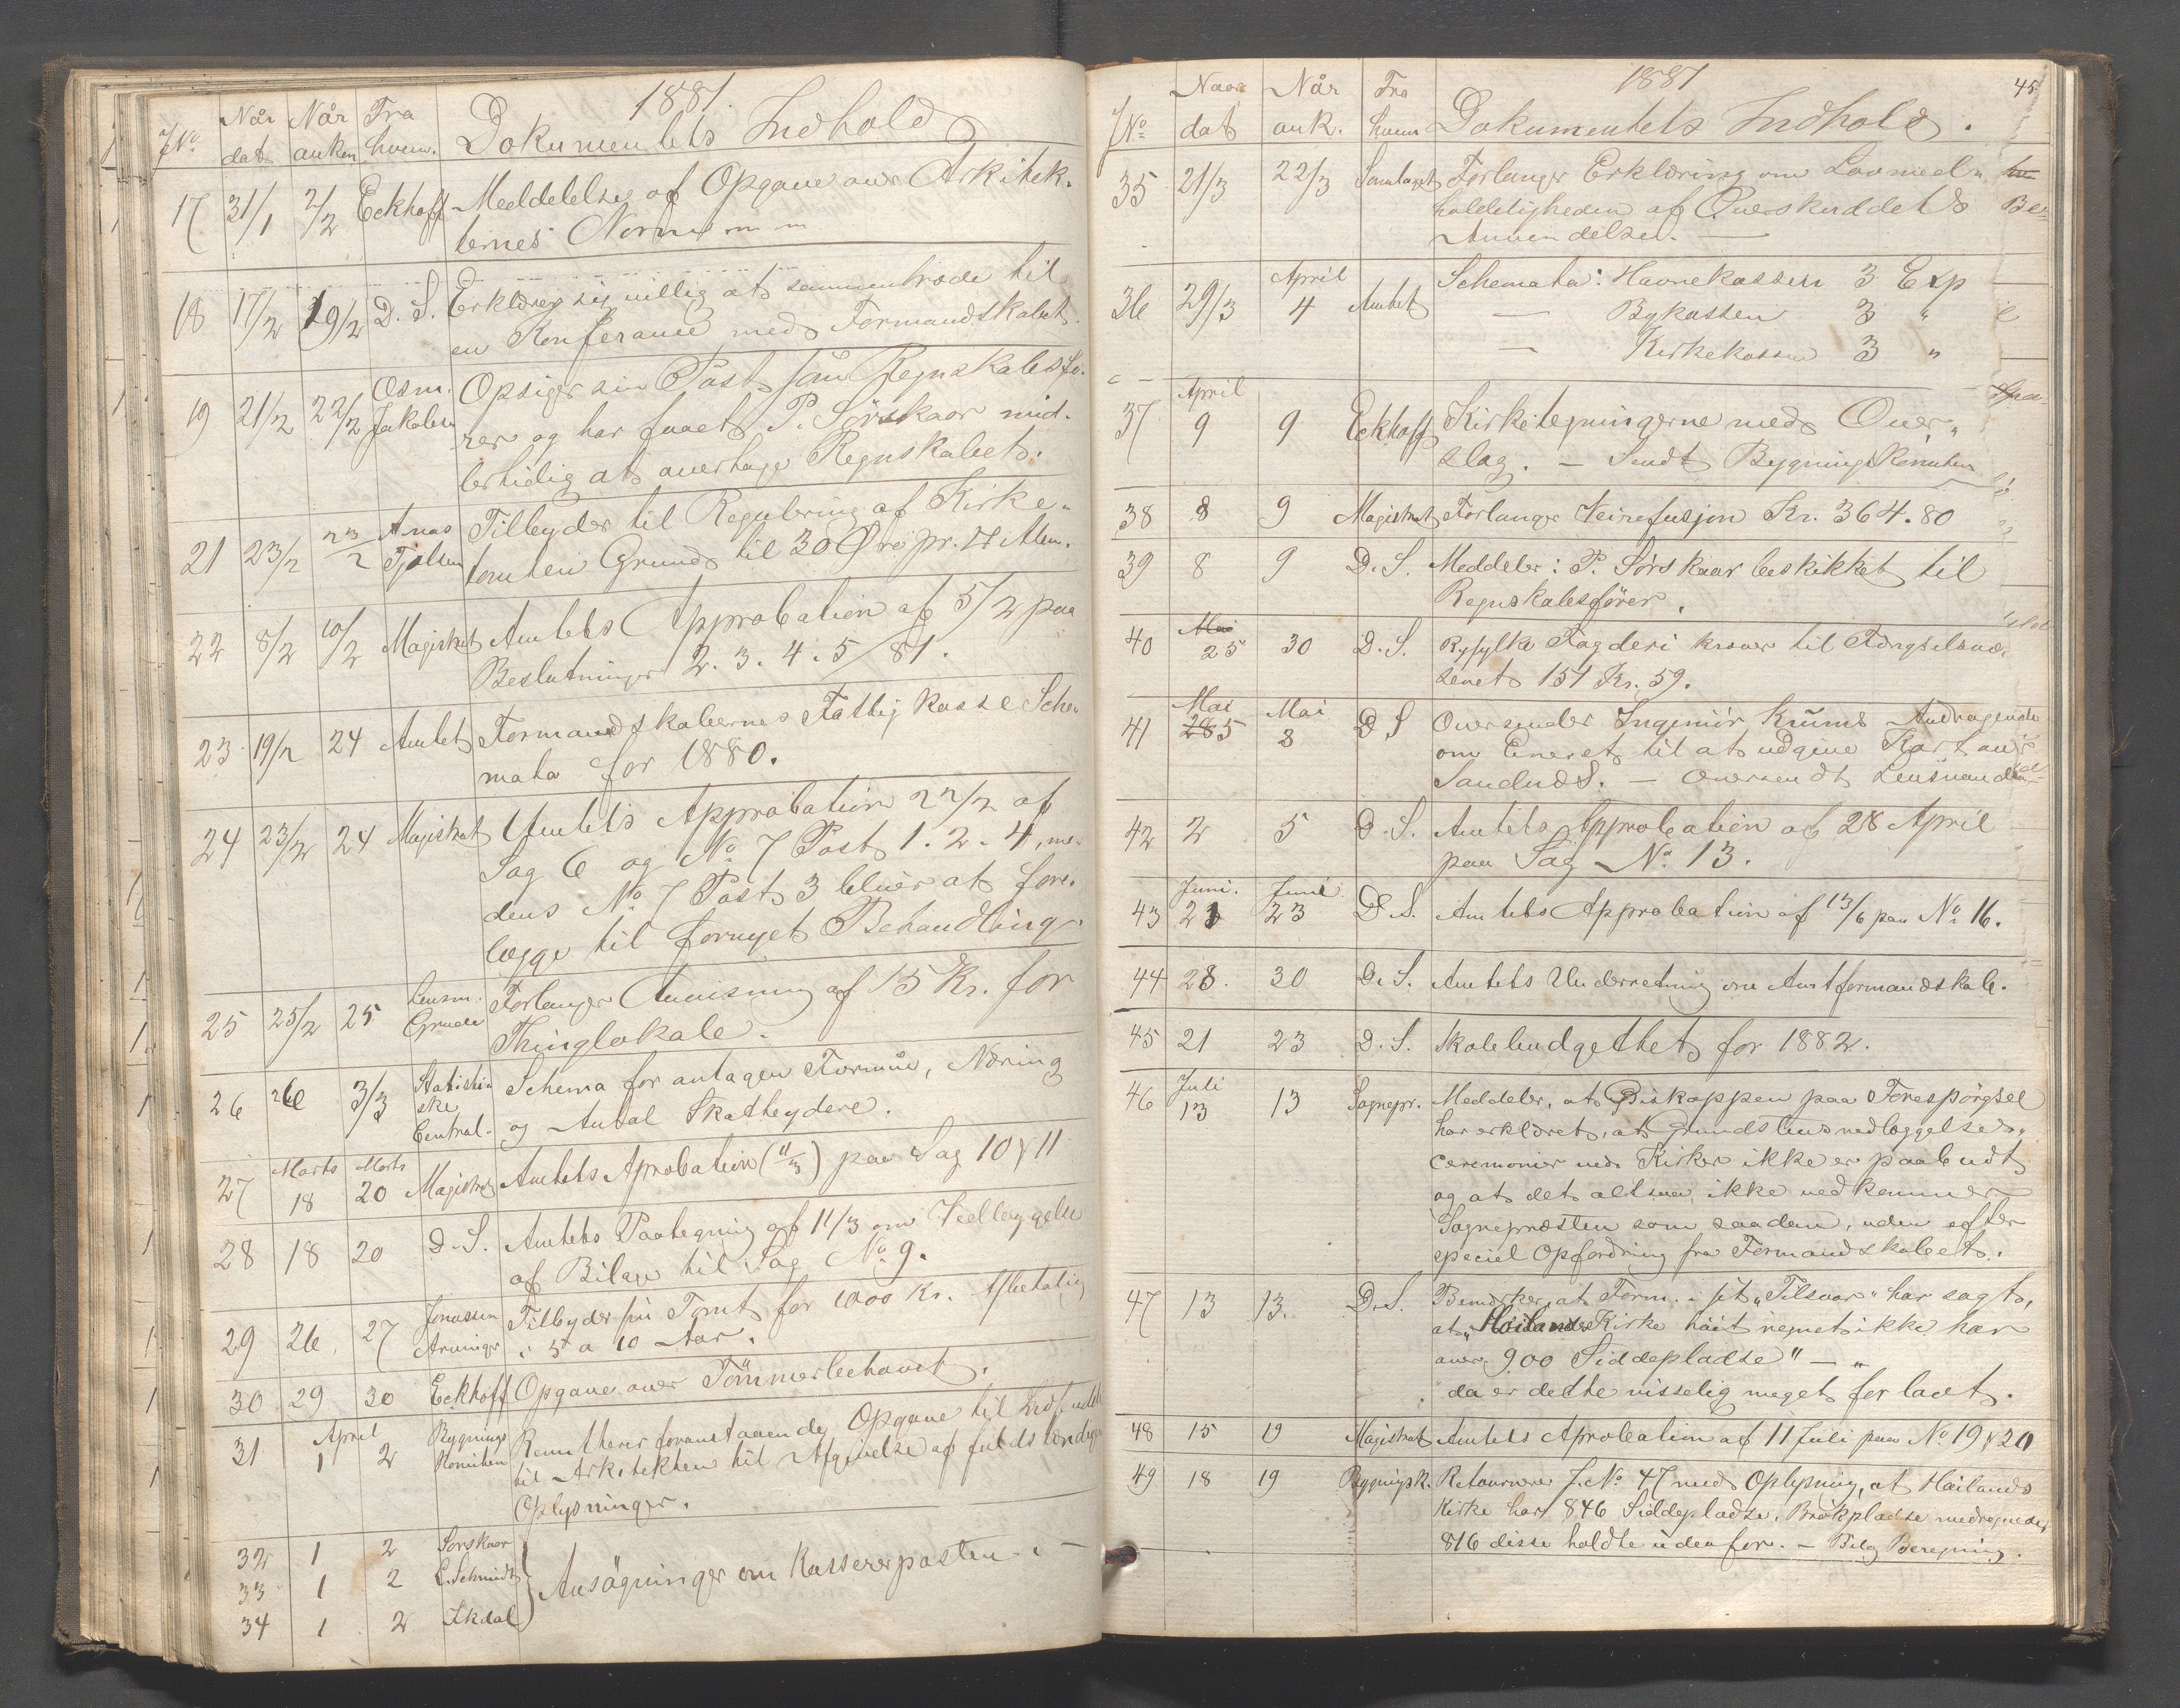 1881.
JNo. Når dat Når ankom Fra hvem. Dokumentets Indhold
17 31/1 2/2 Eckhoff Meddelelse af Opgave over Arkitek-
ternes Norm m m
18 17/2 19/2 D. S. Erklærer sig villig at sammentræde til
en Konferance med Formandskabet.
19 21/2 22/2 Osm. Jakobsen Opsiger sin Post som Regnskabsfø-
rer og har faaet P. Sörskaar mid-
lertidig at overtage Regnskabet.
21 23/2 23/2 Anas Tjølsen Tilbyder til Regulering af Kirke-
tomten Grund til 30 Øre pr. □ Alen.
22 8/2 10/2 Magistrat Amtets Approbation af 5/2 paa
Beslutninger 2. 3. 4. 5/81.
23 19/2 24 Amtet Formandskabernes Fattigkasse Sche-
mata for 1880.
24 23/2 24 Magistrat Amtets Approbation 22/2 af
Sag 6 og No 7 Post 1. 2. 4, me-
dens No 7 Post 3 bliver at fore-
lægge til fornyet Behandling.
25 25/2 25 Lensm. Grude Forlanger Anvisning af 15 Kr. for
Thinglokale.
26 26 3/3 Statisti- Schema for antagen Formue, Næring
ske Central- og Antal Skatteydere.
27 Marts 18 Marts 20 Magistrat Amtets Aprobation (11/3) paa Sag 10 & 11
28 18 20 D. S. Amtets Paategning af 11/3 om Vedlæggelse
af Bilage til Sag No 9.
29 26 27 Jonassen Tilbyder sin Tomt for 1000 Kr. Afbetaling
i 5 a 10 Aar.
30 29 30 Eckhoff Opgave over Tömmerbehovet.
31 April 1 2 Bygnings Komiteen Remitterer foranstaaende Opgave til Indsendelse
til Arkitekten til Afgivelse af fuldstændige
Oplysninger.
32 1 2 Sörskaar
33 1 2 L. Schmidt } Ansøgninger om Kassererposten. —
34 1 2 Ikdal
1881
45
JNo. Naar dat Når ank. Fra hvem Dokumentets Indhold.
35 21/3 22/3 Samlaget Forlanger Erklæring om Lovmed-
holdeligheden af Overskuddets
Anvendelse. —
36 29/3 April 4 Amtet Schemata: Havnekassen 3 Exp
— Bykassen 3 "
— Kirkekassen 3 "
37 April 9 9 Eckhoff Kirketegningerne med Over-
slag. — Sendt Bygnings Komiteen
38 8 9 Magistrat Forlanger Veirefusjon Kr. 364.80
39 8 9 D. S. Meddeler: P. Sörskaar beskikket til
Regnskabsförer.
40 Mai 25 30 D. S. Ryfylke Fogderi kræver til Fængselsvæ-
senet 151 Kr. 59.
41 Mai 28 5 Mai 8 D S Oversender Ingeniör Krums Andragende
om Eneret til at udgive Kart over
Sandnes. — Oversendt Lensmanden
42 2 5 D. S. Amtets Approbation af 28 April
paa Sag No. 13.
43 Juni. 21 Juni 23 D. S. Amtets Approbation af 13/6 paa No 16.
44 28. 30 D. S. Amtets Underretning om Amtformandskab.
45 21 23 D. S. Skolebudgettet for 1882.
46 Juli 13 13 Sognepr. Meddeler, at Biskoppen paa Forespørgsel
har erklæret, at Grundstensnedlæggelses-
ceremonier ved Kirker ikke er paabudt
og at det altsaa ikke vedkommer
Sognepræsten som saadan, uden efter
speciel Opfordring fra Formandskabet.
47 13 13. D. S. Bemærker, at Form. i sit "Tilsvar" har sagt,
at "Höilands Kirke höit regnet ikke har
over 900 Siddepladse" — "
da er dette visselig meget for lavt.
48 15 19 Magistrat Amtets Aprobation af 11 Juli paa No 19 & 20
49 18 19 Bygningsk. Retournerer J. No 47 med Oplysning, at Höilands
Kirke har 846 Siddepladse, Brökpladse medregnede,
816 disse holdte udenfor. — Bilag Beregning.